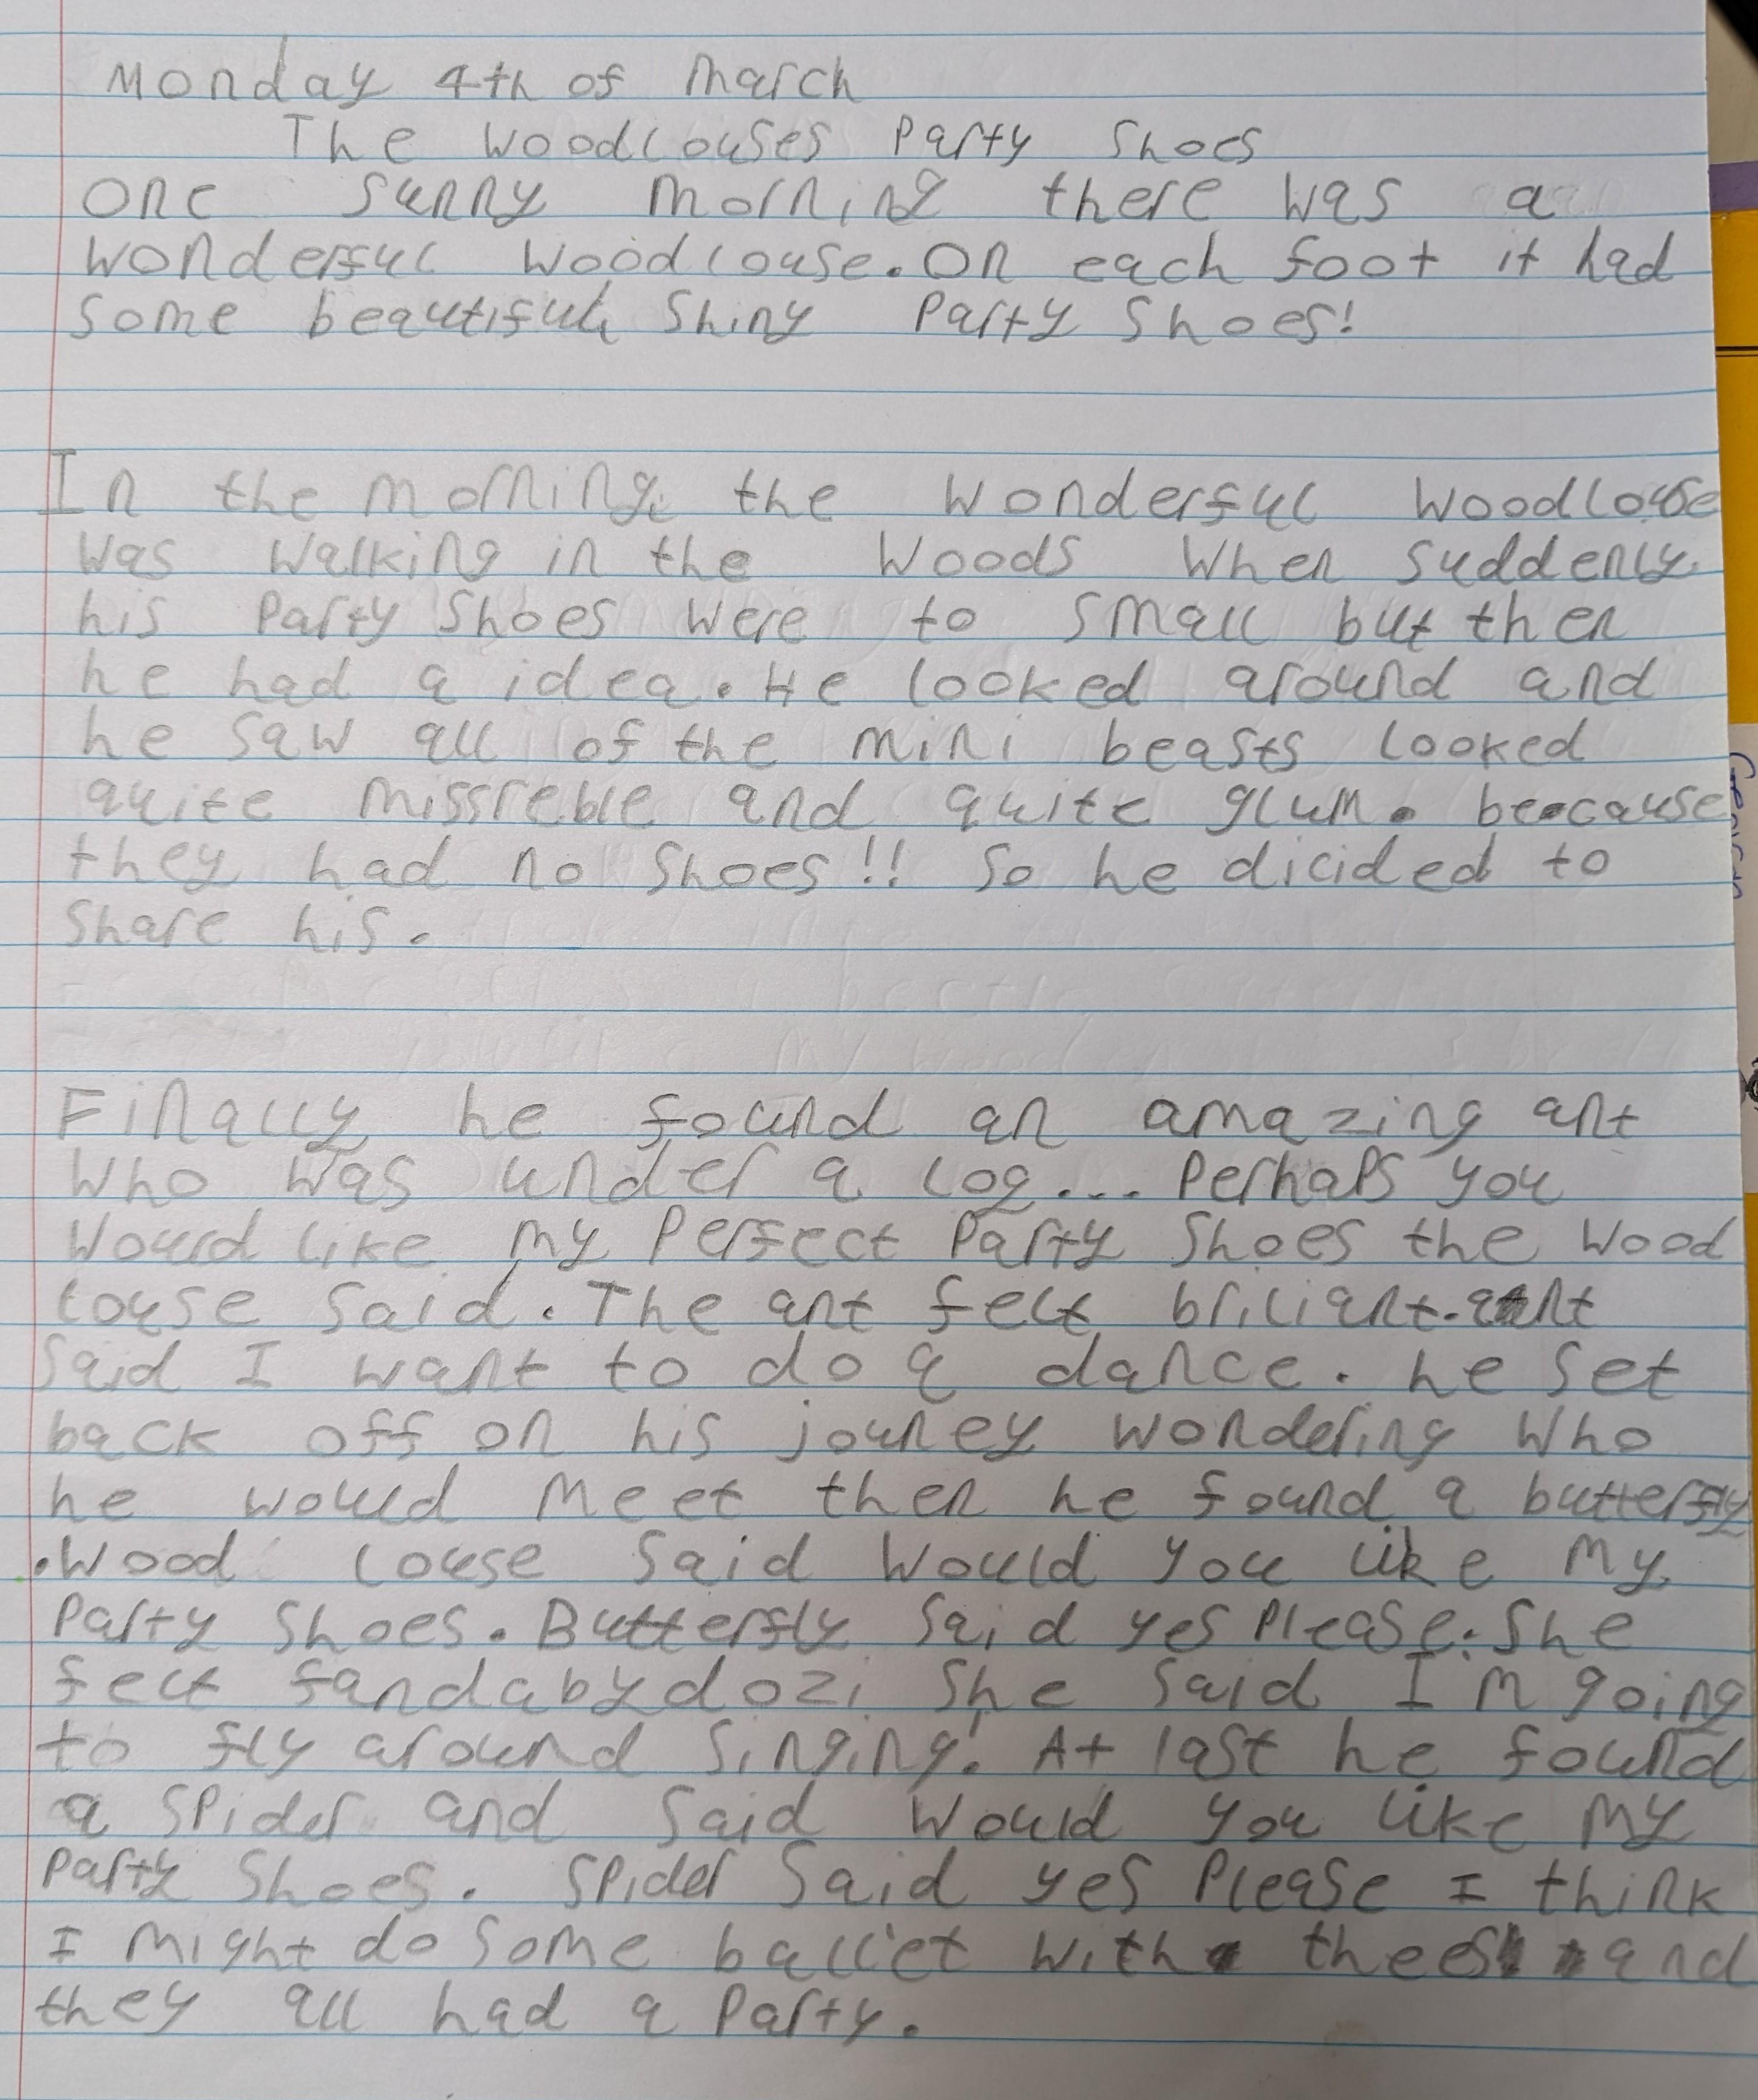 Monday 4th of March
The woodlouses Party Shoes
One sunny morning there was a
wonderful woodlouse. On each foot it had
some beautiful, shiny Party Shoes!
In the morning, the wonderful woodlouse
was walking in the woods when suddenly
his Party Shoes were to small but then
he had a idea. He looked around and
he saw all of the mini beasts looked
quite missreble and quite glum. because
they had no shoes!! So he dicided to
share his.
Finally he found an amazing ant
who was under a log... Perhaps you
would like my Perfect Party Shoes the wood
louse said. The ant felt briliant. ant
said I want to do a dance. he set
back off on his jouney wondering who
he would meet then he found a butterfly
. wood louse said would you like my
Party Shoes. Butterfly said yes Please. She
felt fandabydozi she said I'm going
to fly around singing! At last he found
a spider and said would you like my
Party Shoes. Spider said yes Please I think
I might do some ballet with thees and
they all had a Party.